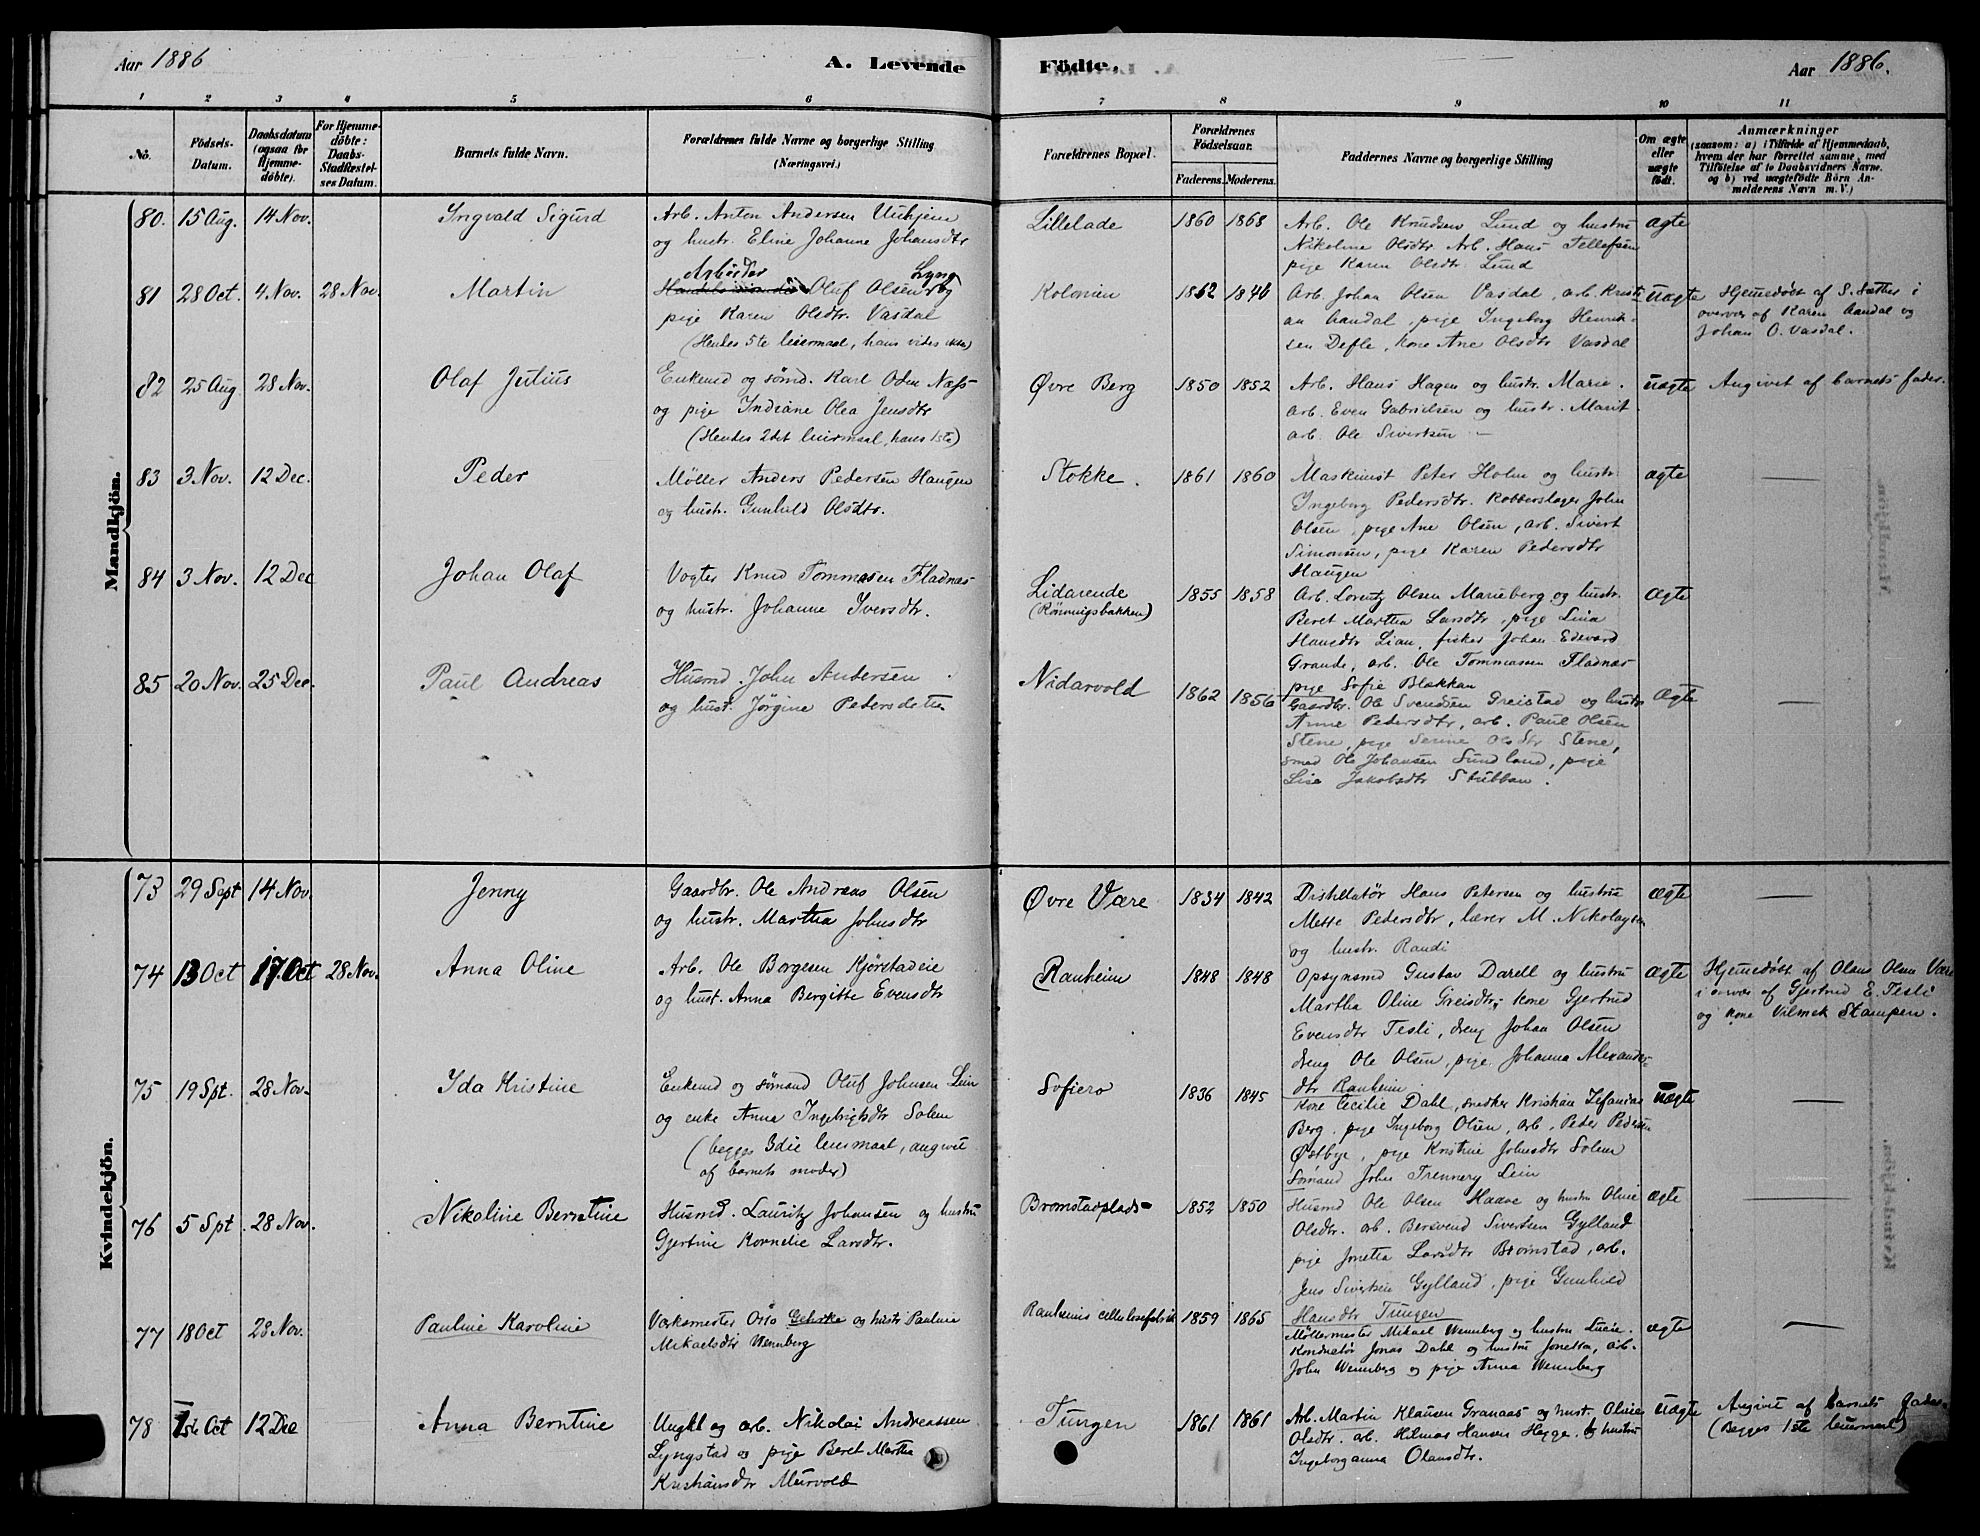 Aar 1886
A. Levende
Födte.
Aar 1886.
1 2 3 4 5 6 7 8 9 10 11
No.
Födsels-
Datum.
Daabsdatum
(ogsaa for
Hjemme-
döbte).
For Hjemme-
döbte:
Daabs-
Stadfæstel-
ses Datum.
Barnets fulde Navn.
Forældrenes fulde Navne og borgerlige Stilling
(Næringsvei.)
Forældrenes Bopæl.
Forældrenes
Födselsaar.
Faderens. Moderens.
Faddernes Navne og borgerlige Stilling
Om ægte
eller
uægte
födt.
Anmærkninger
(saasom: a) i Tilfælde af Hjemmedaab,
hvem der har forrettet samme, med
Tilföielse af to Daabsvidners Navne.
og b) ved uægtefödte Börn An-
melderens Navn m. V.)
Mandkjön.
80. 15 Aug. 14 Nov.
Ingvald Sigurd
Arb. Anton Andersen
og hustr. Eline Johanne Johansdtr
Lillelade
1860 1868
Arb. Ole Knudsen Lund og hustru
Nikoline Olsdtr. Arb. Hans Tellefsen
pige Karen Olsdtr. Lund
ægte
81 28 Oct. 4 Nov. 28 Nov.
Martin
Arbeider Lyng
Oluf Olsen og
pige Karen Olsdtr. Vasdal
(Hendes 5te leiermaal, hans vides ikke)
Kolonien
1852 1846
Arb. Johan Olsen Vasdal, arb. Kristi-
an Aandal, pige Ingeborg Henrik-
sen Defle, kone Ane Olsdtr Vasdal
uægte
Hjemedøbt af S. Sæther i
overvær af Karen Aandal og
Johan O. Vasdal.
82 25 Aug. 28 Nov.
Olaf Julius
Enkemd og sømd. Karl Næss
og pige Indiane Olea Jensdtr
(Hendes 2det leiermaal, hans 1ste)
Øvre Berg
1850 1852
Arb. Hans Hagen og hustr. Marie.
arb. Even Gabrielsen og hustr. Marit
arb. Ole Sivertsen –
uægte
Angivet af barnets fader.
83 3 Nov. 12 Dec.
Peder
Møller Anders Pedersen Haugen
og hustr. Gunhild Olsdtr.
Stokke.
1861 1860
Maskinist Peter Holm og hustr.
Ingeborg Pedersdtr. Kobberslager John
Olsen, pige Ane Olsen, arb. Sivert
Simonsen, pige Karen Pedersdtr
Haugen
ægte
84 3 Nov. 12 Dec
Johan Olaf
Vogter Knud Tommesen Fladnæs
og hustr. Johanne Iversdtr.
Lidarende
(Rönningsbakken)
1855 1858
Arb. Lorentz Olsen Marieberg og hustr.
Beret Martha Larsdtr, pige Lina
Hansdtr Lian, fisker Johan Edevard
Grande, arb. Ole Tommasen Fladnæs
pige Sofie Blækkan
ægte
85 20 Nov. 25 Dec.
Paul Andreas
Husmd. John Andersen
og hust. Jørgine Pedersdatter
Nidarvold
1862 1856
Gaardbr. Ole Svendsen Greistad og hustru
Anne Pedersdtr, arb. Paul Olsen
Stene, pige Serine Olsdtr Stene,
smed Ole Johansen Sundland, pige
Lise Jakobsdtr Stubban.
Ægte
Kvindekjön.
73 29 Sept 14 Nov.
Jenny
Gaardbr. Ole Andreas Olsen
og hustr. Martha Johnsdtr
Øvre Være
1834 1842
Distillatør Hans Petersen og hustru
Mette Pedersdtr, lærer M. Nikolaysen
og hustr. Randi
ægte
74 13 Oct 17. Oct 28 Nov.
Anna Oline
Arb. Ole Borgesen Kjørstadeie
og hust. Anna Bergitte Evensdtr
Ranheim
1848 1848
Opsynsmd Gustav Darell og hustru
Martha Oline Greisdtr, kone Gjertrud
Evensdtr Tesli, dreng Johan Olsen
dreng Ole Olsen, pige Johanna Alexander-
dtr Ranheim.
ægte
Hjemedøbt af Olaus Olsen Være
i ovvær af Gjertrud E. Tesli
og kone Vilmek Stampen.
75 19 Spt. 28 Nov.
Ida Kristine
Enkemd og sømand Oluf Johnsen Lein
og enke Anna Ingebrigtsdtr Solem
(begges 3die leiermaal, angivet
af barnets moder)
Sofiero
1836 1845
Kone Cecilie Dahl, snedker Kristian Zefanias
Berg, pige Ingeborg Olsen, arb. Peter Pedersen
Østbye, pige Kristine Johnsdtr Solem
Sømand John Trennery Lein
uægte
76 5 Spt 28 Nov.
Nikoline Berntine
Husmd. Lauritz Johansen og hustru
Gjertine Kornelie Larsdtr.
Bromstadplads
1852 1850
Husmd Ole Olsen Haave og hustru Oline
Olsdtr. arb. Bersvend Sivertsen Gylland
pige Jonetta Larsdtr Bromstad, arb.
Jens Sivertsen Gylland, pige Gunhild
Hansdtr Tungen
ægte
77 18 Oct 28 Nov.
Pauline Karoline
Værksmester Otto Gehrke og hustr Pauline
Mikaelsdtr Wennberg
Ranheims cellulosefabrik
1859 1865
Møllermester Mikael Wennberg og hustru Lucie.
Konduktør Jonas Dahl og hustru Jonetta, arb.
John Wennberg og pige Anna Wennberg
ægte
78 1ste Oct 12 Dec
Anna Berntine
Ungkl og arb. Nikolai Andreassen
Lyngstad og pige Beret Martha
Kristiansdtr Meurvold
Tungen
1861 1861
Arb. Martin Klausen Granaas og hust. Oline
Olsdtr. arb. Hilmar Hansen Hegge. og hustru
Ingeborganna Olausdtr.
uægte
Angivet af barnets fader.
(Begges 1ste leiermaal)